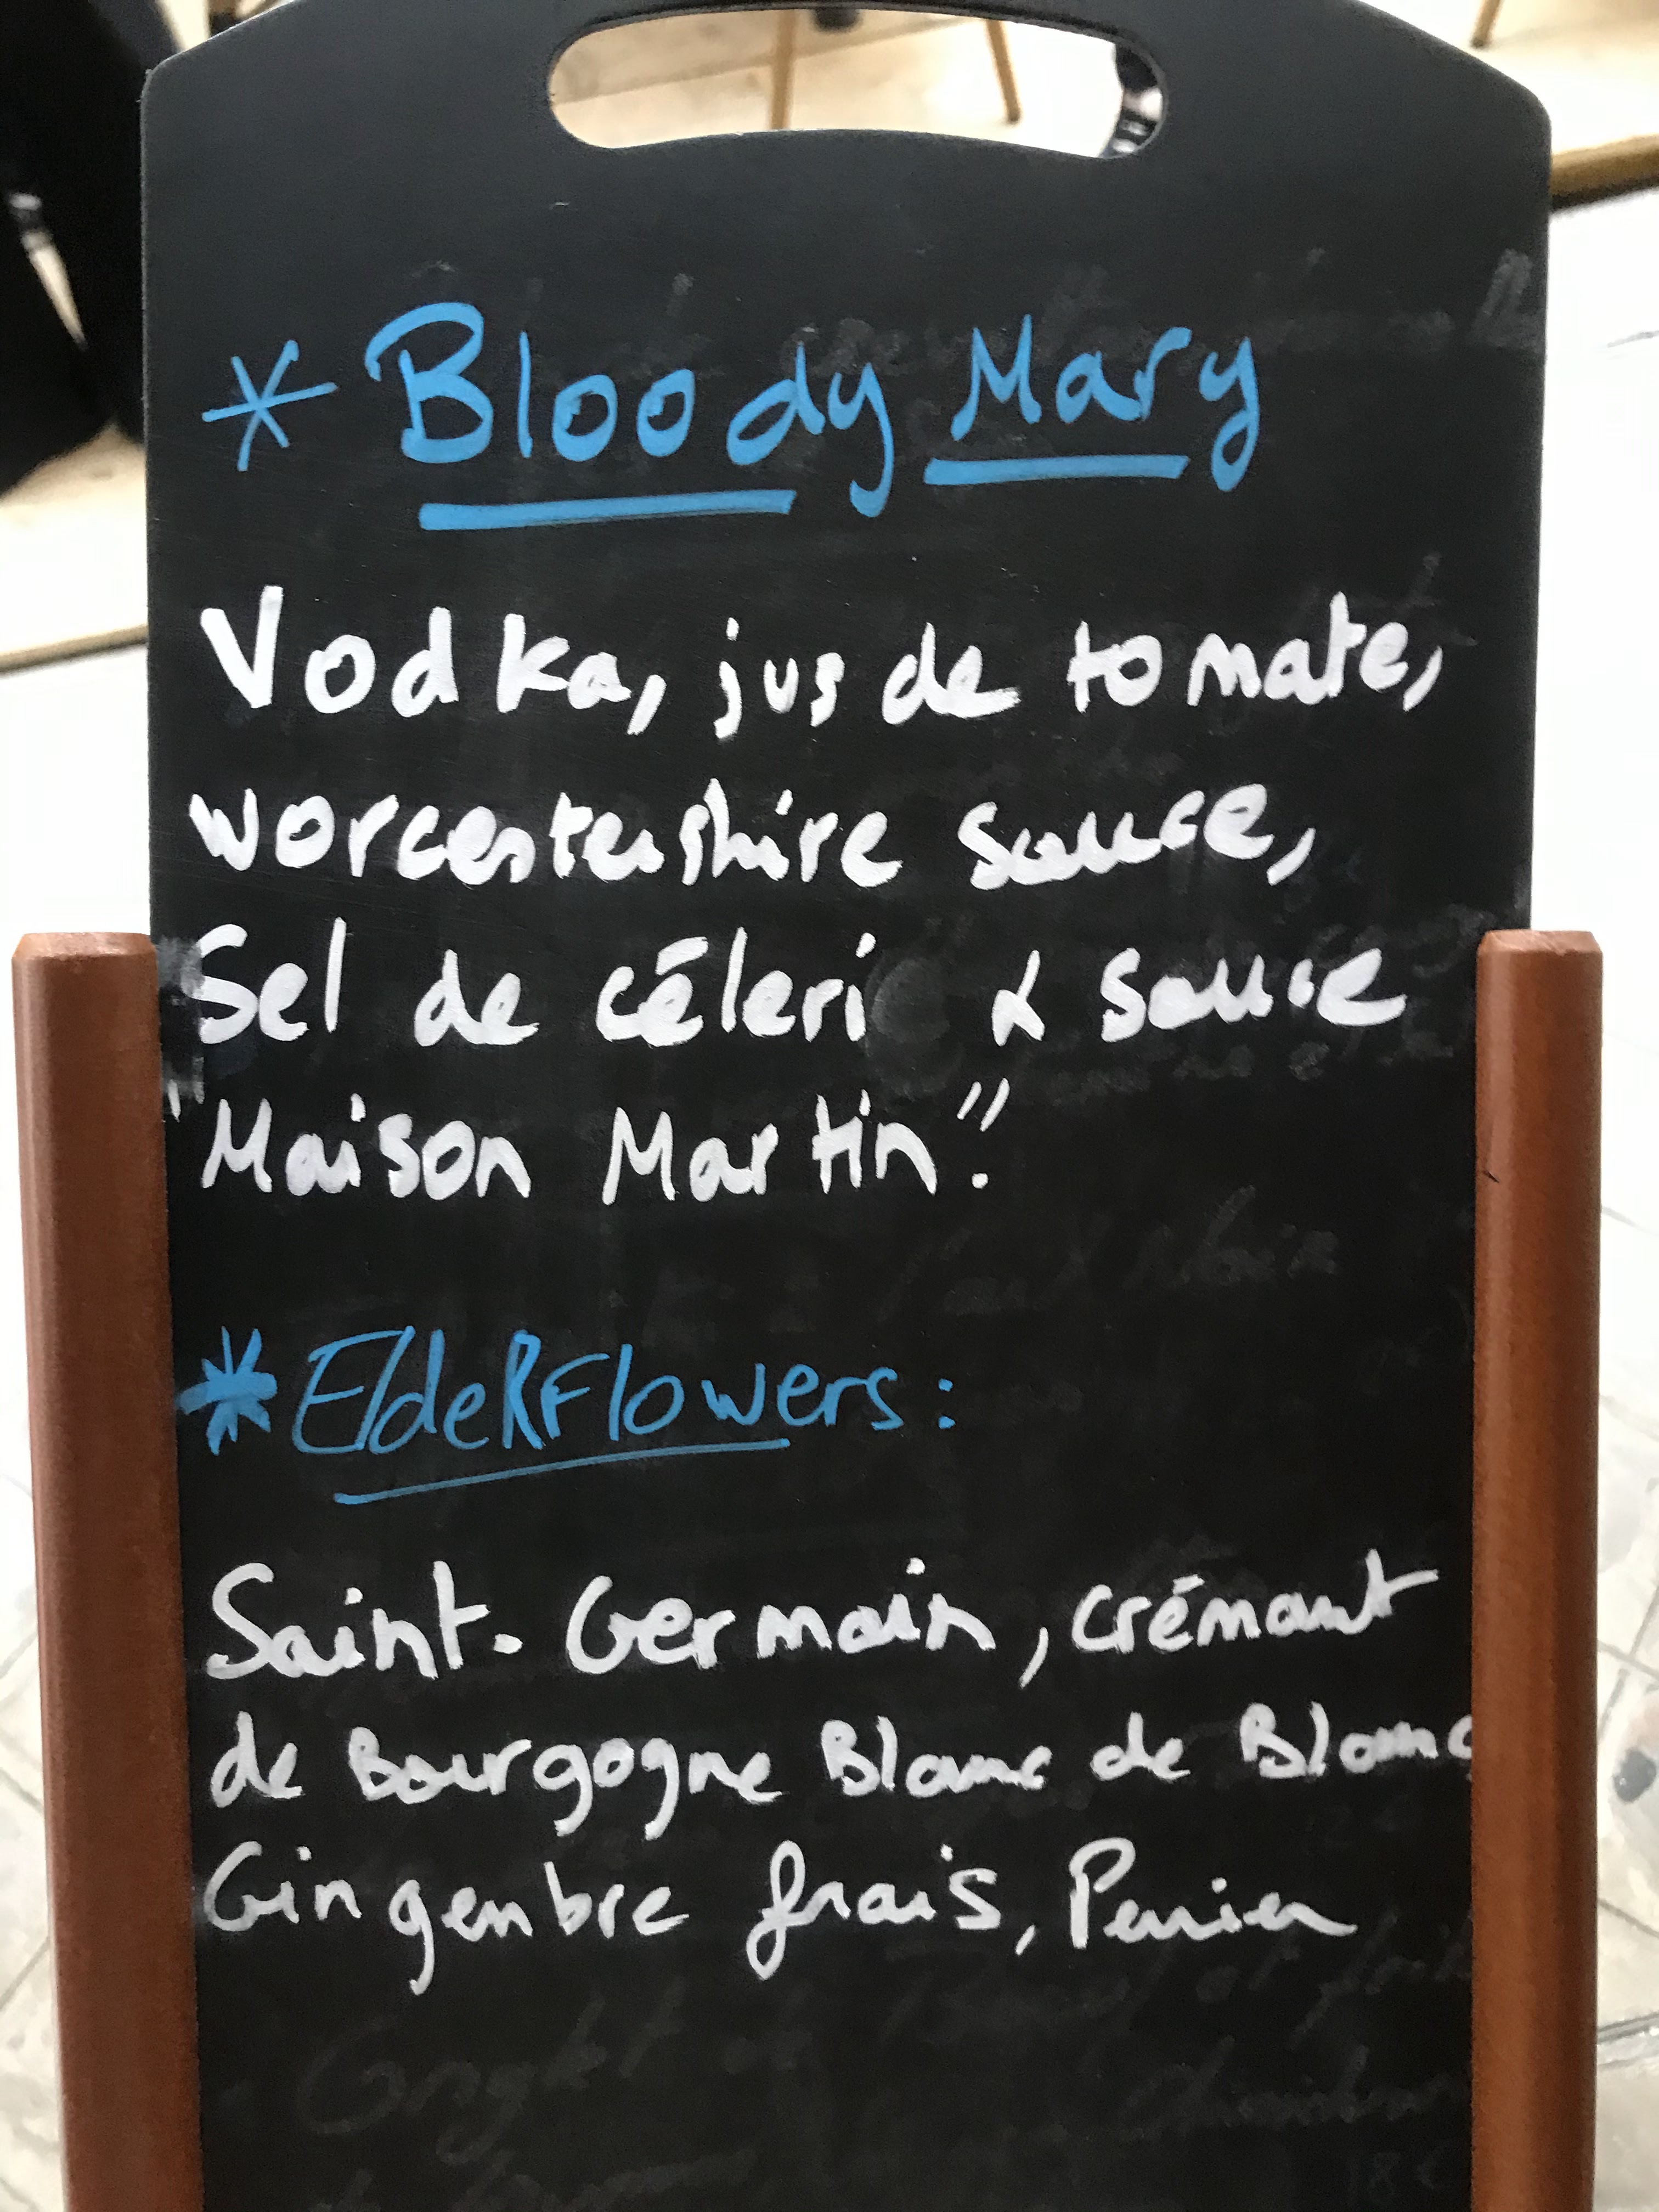 * Bloody Mary
Vodka, jus de tomate,
worcestershire sauce,
Sel de céleri & sauce
"Maison Martin".
* EldeRFlowers :
Saint-Germain, crémant
de Bourgogne Blanc de Blanc
Gingembre frais, Perrier